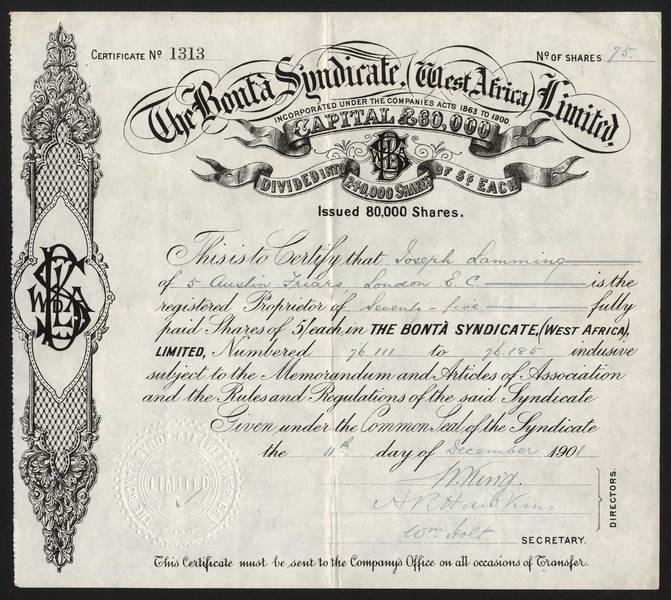 CERTIFICATE No 1313
No OF SHARES 75.
The Bontà Syndicate, (West Africa) Limited.
INCORPORATED UNDER THE COMPANIES ACTS 1863 TO 1900
CAPITAL £60,000
DIVIDED INTO 240,000 SHARES OF 5s EACH
Issued 80,000 Shares.
This is to Certify that Joseph Lamming
of 5 Austin Friars, London E.C. is the
registered Proprietor of Seventy-five fully
paid Shares of 5/ each in THE BONTÀ SYNDICATE, (WEST AFRICA),
LIMITED, Numbered 76.111 to 76.185 inclusive
subject to the Memorandum and Articles of Association
and the Rules and Regulations of the said Syndicate
Given under the Common Seal of the Syndicate
the 11th day of December 1901
THE BONTÀ SYNDICATE (WEST AFRICA)
LIMITED
W. King.
A R Hawkins
DIRECTORS.
Wm Holt
SECRETARY.
This Certificate must be sent to the Company's Office on all occasions of Transfer.